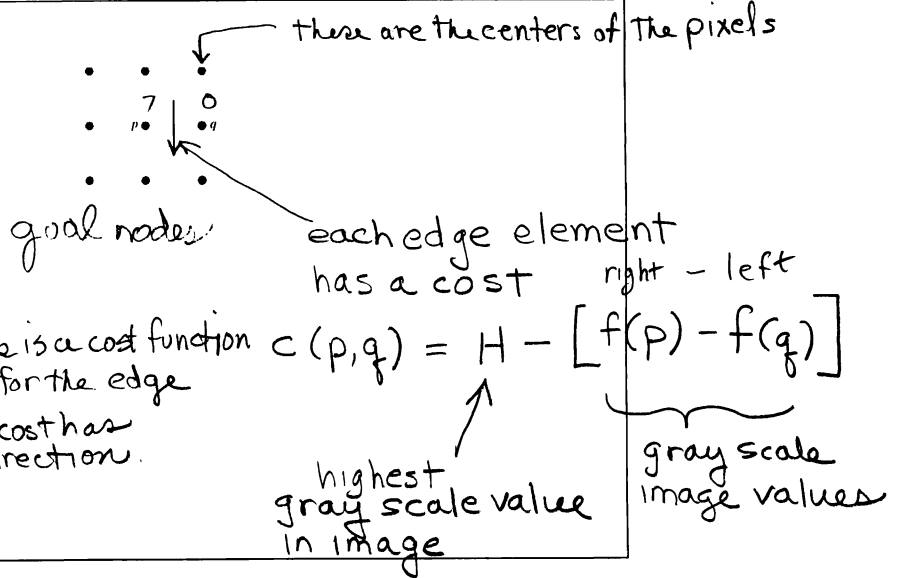 these are the centers of the pixels
7 0
p q
goal nodes
each edge element
has a cost
right - left
is a cost function
c(p,q) = H - [f(p) - f(q)]
for the edge
cost has
rection.
highest
gray scale value
in image
gray scale
image values